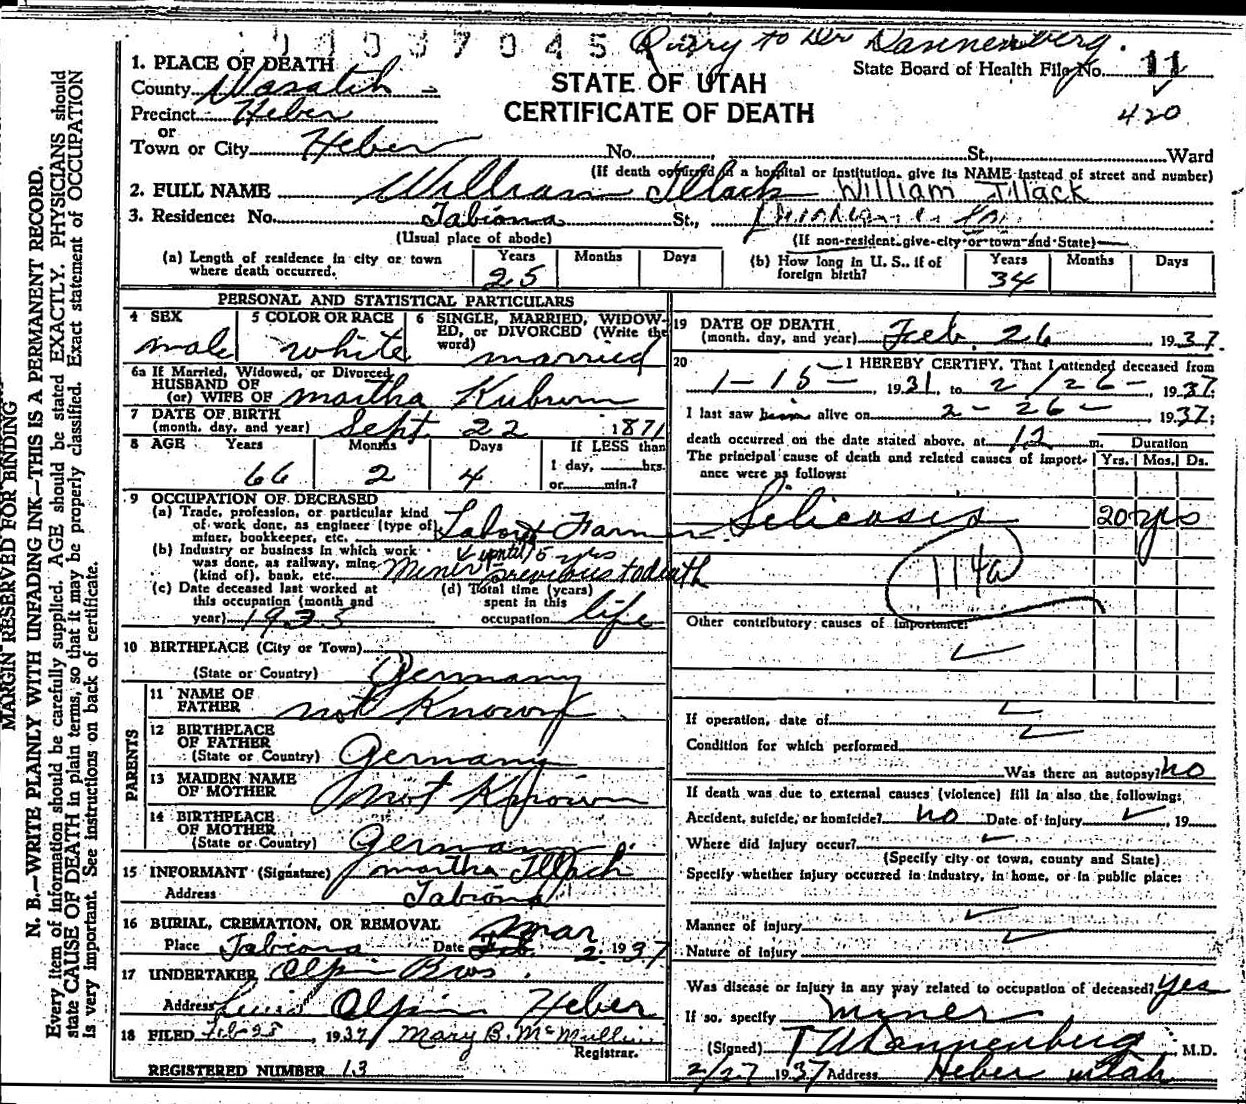 0037045
Query to Dr Dannenberg.
1. PLACE OF DEATH
County Wasatch
STATE OF UTAH
State Board of Health File No. 11
Precinct Heber
CERTIFICATE OF DEATH
420
or
Town or City Heber No. St., Ward
(If death occurred in a hospital or institution, give its NAME instead of street and number)
2. FULL NAME William Tillack William Tillack
3. Residence: No. Tabiona St.,
(Usual place of abode) (If non-resident give city or town and State)
(a) Length of residence in city or town where death occurred. Years 25 Months Days
(b) How long in U. S., if of foreign birth? Years 34 Months Days
PERSONAL AND STATISTICAL PARTICULARS
4 SEX male
5 COLOR OR RACE white
6 SINGLE, MARRIED, WIDOWED, or DIVORCED (Write the word) married
6a If Married, Widowed, or Divorced
HUSBAND OF
(or) WIFE OF Martha
7 DATE OF BIRTH
(month, day, and year) Sept. 22 1871
8 AGE Years 66 Months 2 Days 4 If LESS than 1 day, hrs. or min.?
9 OCCUPATION OF DECEASED
(a) Trade, profession, or particular kind of work done, as engineer (type of) miner, bookkeeper, etc. Labor Farmer
(b) Industry or business in which work was done, as railway, mine (kind of), bank, etc. Miner until 5 yrs previous to death
(c) Date deceased last worked at this occupation (month and year) 1935
(d) Total time (years) spent in this occupation life
10 BIRTHPLACE (City or Town)
(State or Country) Germany
PARENTS
11 NAME OF FATHER not Known
12 BIRTHPLACE OF FATHER
(State or Country) Germany
13 MAIDEN NAME OF MOTHER not Known
14 BIRTHPLACE OF MOTHER
(State or Country) Germany
15 INFORMANT (Signature) Martha Tillack
Address Tabiona
16 BURIAL, CREMATION, OR REMOVAL Mar
Place Tabiona Date Feb. 2 1937
17 UNDERTAKER Olpin Bros.
Address Olpin Heber
18 FILED Feb 28, 1937 Mary B. McMullin
Registrar.
REGISTERED NUMBER 13
19 DATE OF DEATH
(month, day, and year) Feb. 26 1937.
20 I HEREBY CERTIFY, That I attended deceased from
1-15- 1931, to 2/26- 1937
I last saw him alive on 2-26- 1937;
death occurred on the date stated above, at 12 m.
The principal cause of death and related causes of importance were as follows:
Duration
Yrs. Mos. Ds.
Silicosis 20 yrs
114a
Other contributory causes of importance:
If operation, date of
Condition for which performed
Was there an autopsy? no
If death was due to external causes (violence) fill in also the following:
Accident, suicide, or homicide? no Date of injury , 19
Where did injury occur?
(Specify city or town, county and State)
Specify whether injury occurred in industry, in home, or in public place:
Manner of injury
Nature of injury
Was disease or injury in any way related to occupation of deceased? yes
If so, specify miner
(Signed) Dannenberg, M.D.
2/27 1937 Address Heber Utah
MARGIN RESERVED FOR BINDING
N. B.—WRITE PLAINLY WITH UNFADING INK—THIS IS A PERMANENT RECORD.
Every item of information should be carefully supplied. AGE should be stated EXACTLY. PHYSICIANS should
state CAUSE OF DEATH in plain terms, so that it may be properly classified. Exact statement of OCCUPATION
is very important. See instructions on back of certificate.